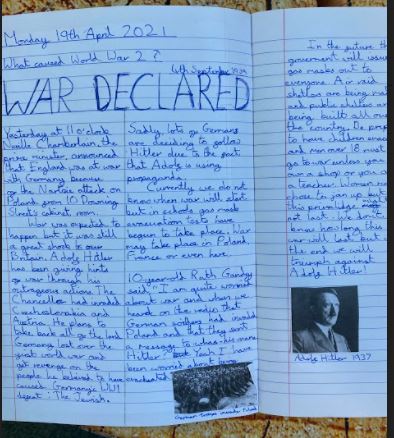 Monday 19th April 2021
What caused World War 2?
4th September 1939
WAR DECLARED
Yesterday at 11 o'clock
Neville Chamberlain, the
prime minister, announced
that England was at war
with Germany because
of the Narzee attack on
Poland from 10 Downing
Street's cabinet room.
War was expected to
happen but it was still
a great shock to
Britain. Adolf Hitler
has been giving hints
of war through his
outrageous actions. The
Chancellor had invaded
Czechoslovakia and
Austria. He plans to
take back all of the land
Germany lost over the
great world war and
get revenge on the
people he believed to have
caused Germany's WW1
defeat: The Jewish.
Sadly, lots of Germans
are deciding to follow
Hitler due to the fact
that Adolf is using
propaganda.
Currently we do not
know when war will start
but in schools gas mask
evacuation tests have
begun to take place. War
may take place in Poland,
France or even here.
10-year-old Ruth
said, "I am quite worried
about war and when we
heard on the radio that
German soldiers had invaded
Poland and that they sent
a message to
Hitler Yeah I have
been worried about being
evacuated
German Troops invade Poland
In the future the
government will issue
gas masks out to
everyone. Air raid
shelters are being made
and public shelters are
being built all over
the country.
to have children
and men over 18 must
go to war unless you
own a shop or you are
a teacher. Women
chose to join up but
this privilege might
not last. We don't
know how long this
war will last but
the end we will
triumph against
Adolf Hitler!
Adolf Hitler 1937